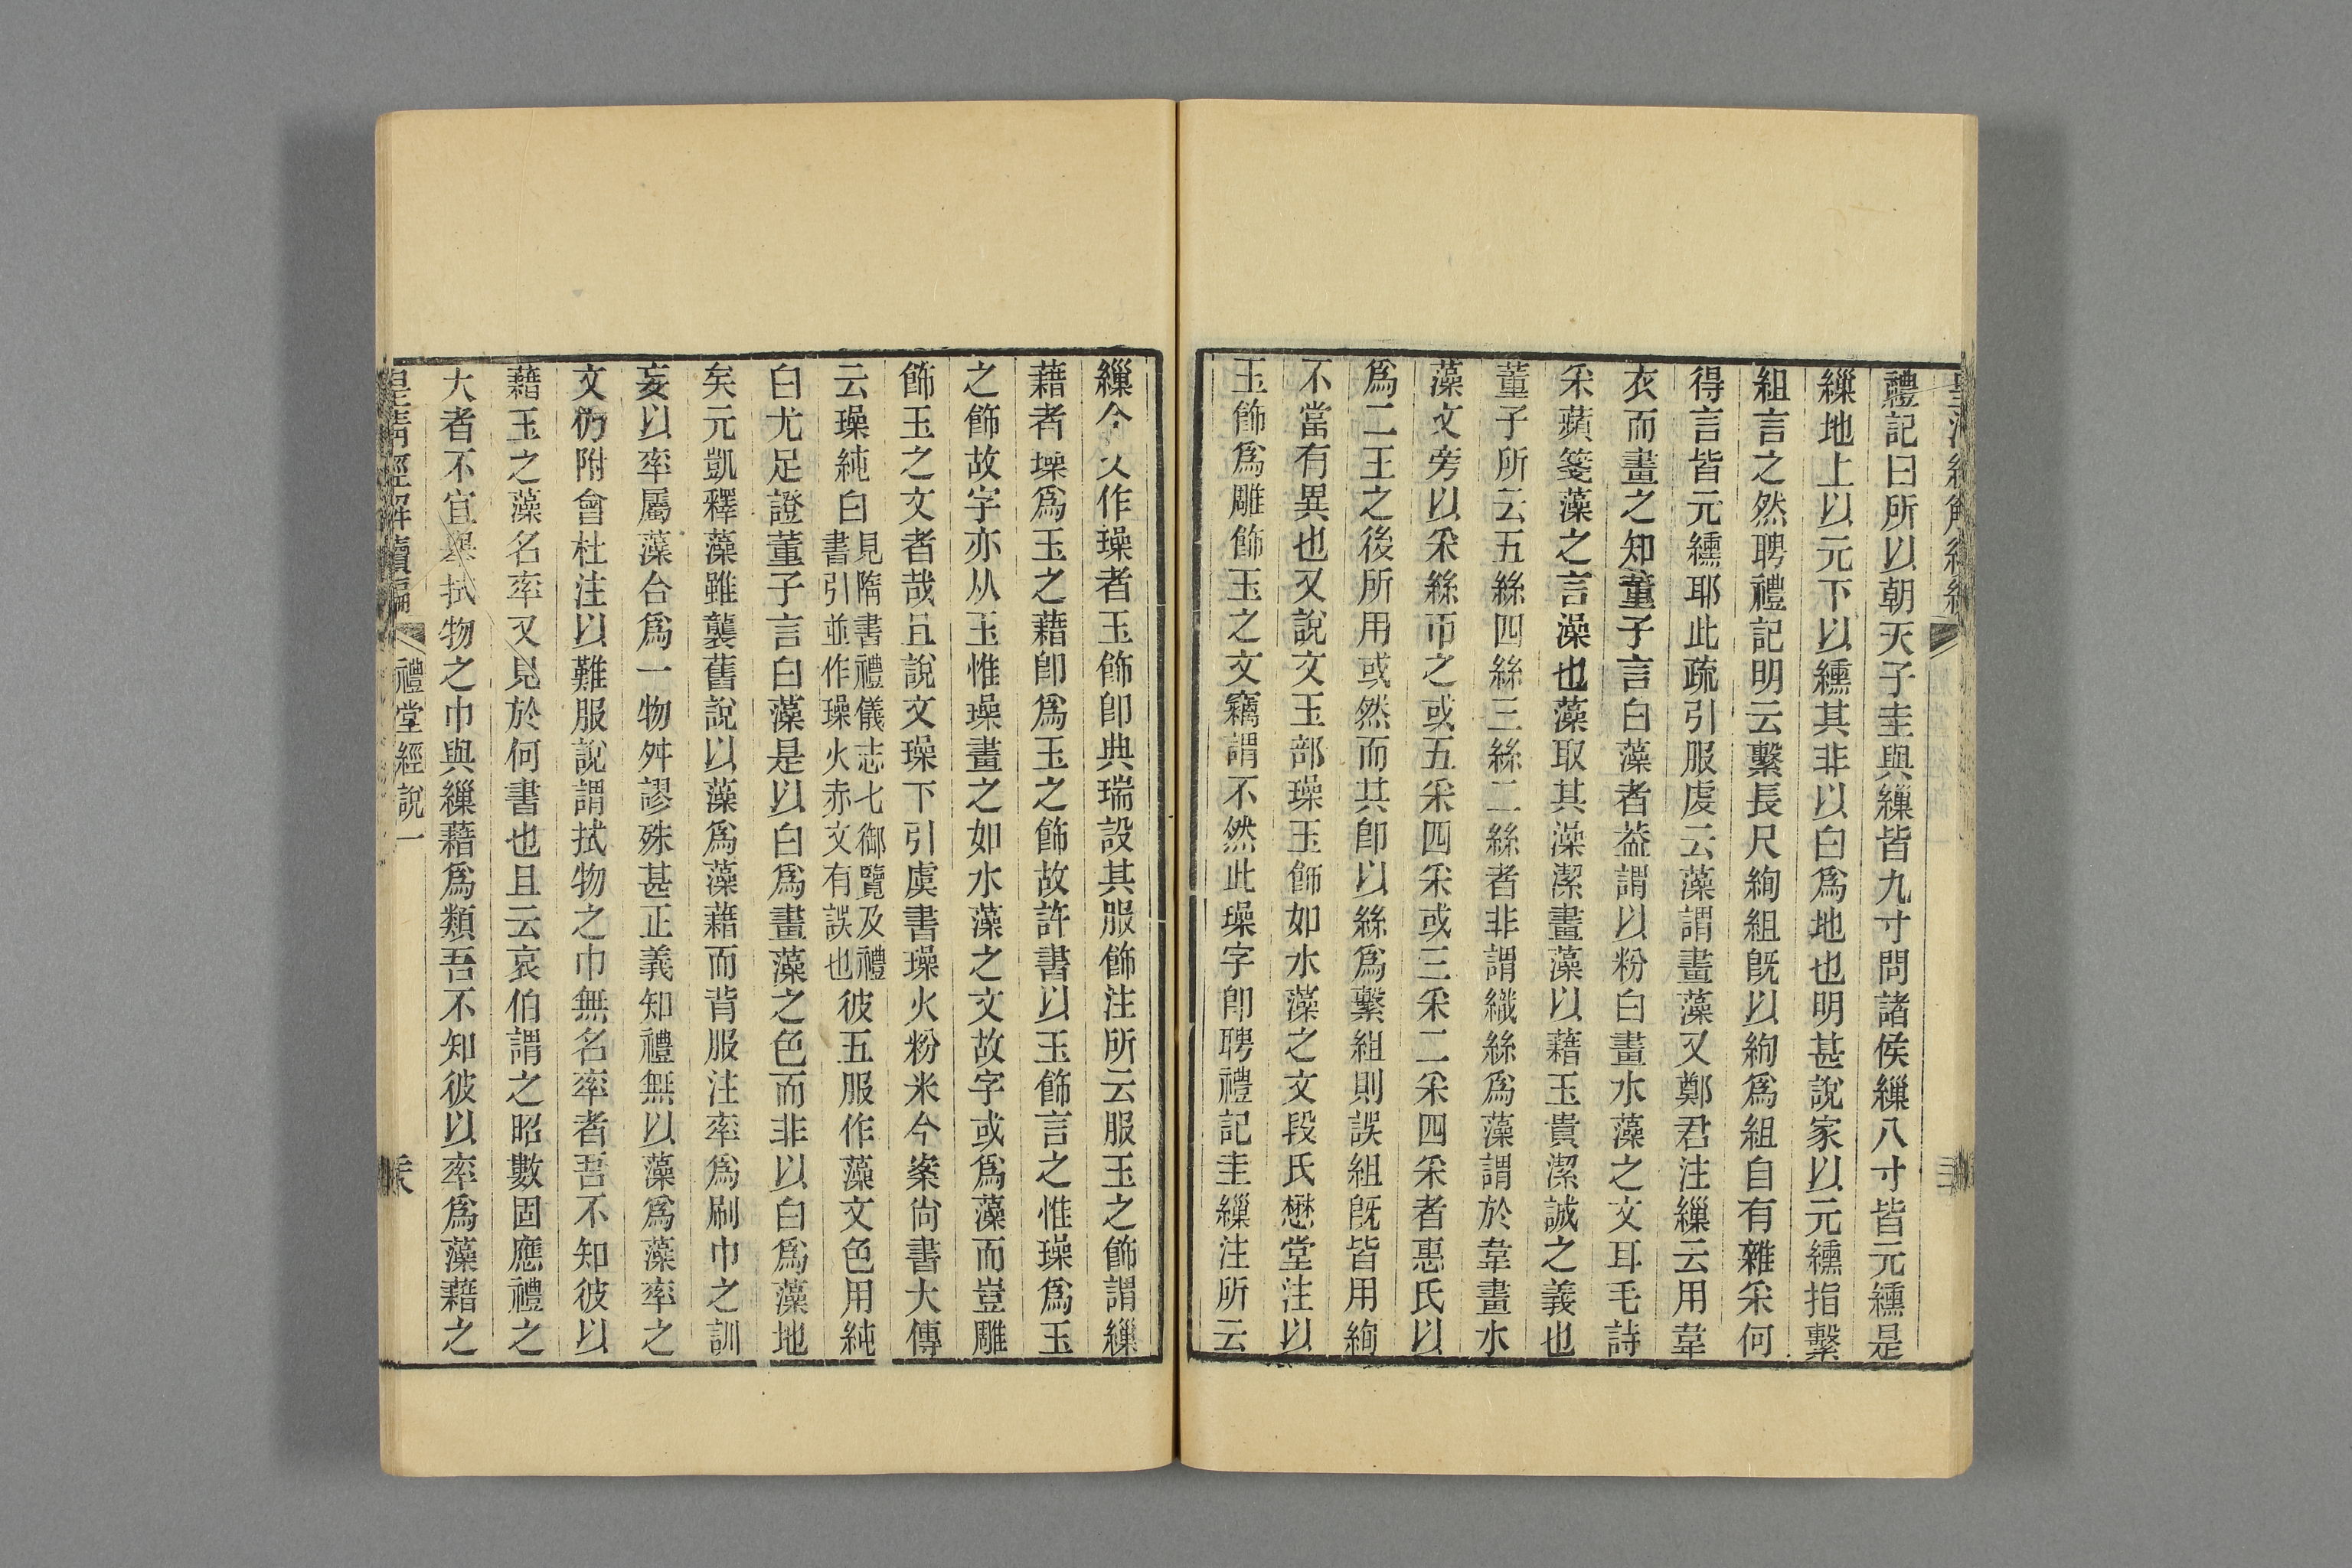 禮記曰所以朝天子圭與繅皆九寸問諸侯繅八寸皆元纁是
繅地上以元下以纁其非以白爲地也明甚說家以元纁指繫
組言之然聘禮記明云繫長尺絢組旣以絢爲組自有雜采何
得言皆元纁耶此疏引服虔云藻謂畫藻又鄭君注繅云用韋
衣而畫之知董子言白藻者葢謂以粉白畫水藻之文耳毛詩
采蘋箋藻之言澡也藻取其澡潔畫藻以藉玉貴潔誠之義也
董子所云五絲四絲三絲二絲者非謂織絲爲藻謂於韋畫水
藻文旁以采絲帀之或五采四采或三采二采四采者惠氏以
爲二王之後所用或然而其卽以絲爲繫組則誤組旣皆用絢
不當有異也又說文玉部璪玉飾如水藻之文段氏懋堂注以
玉飾爲雕飾玉之文竊謂不然此璪字卽聘禮記圭繅注所云
繅今文作璪者玉飾卽典瑞設其服飾注所云服玉之飾謂繅
藉者璪爲玉之藉卽爲玉之飾故許書以玉飾言之惟璪爲玉
之飾故字亦从玉惟璪畫之如水藻之文故字或爲藻而豈雕
飾玉之文者哉且說文璪下引虞書璪火粉米今案尙書大傳
云璪純白見隋書禮儀志七御覽及禮書引並作璪火赤文有誤也彼五服作藻文色用純
白尤足證董子言白藻是以白爲畫藻之色而非以白爲藻地
矣元凱釋藻雖襲舊說以藻爲藻藉而背服注率爲刷巾之訓
妄以率屬藻合爲一物舛謬殊甚正義知禮無以藻爲藻率之
文仍附會杜注以難服說謂拭物之巾無名率者吾不知彼以
藉玉之藻名率又見於何書也且云哀伯謂之昭數固應禮之
大者不宜舉拭物之巾與繅藉爲類吾不知彼以率爲藻藉之
皇淸經解續編 禮堂經說一